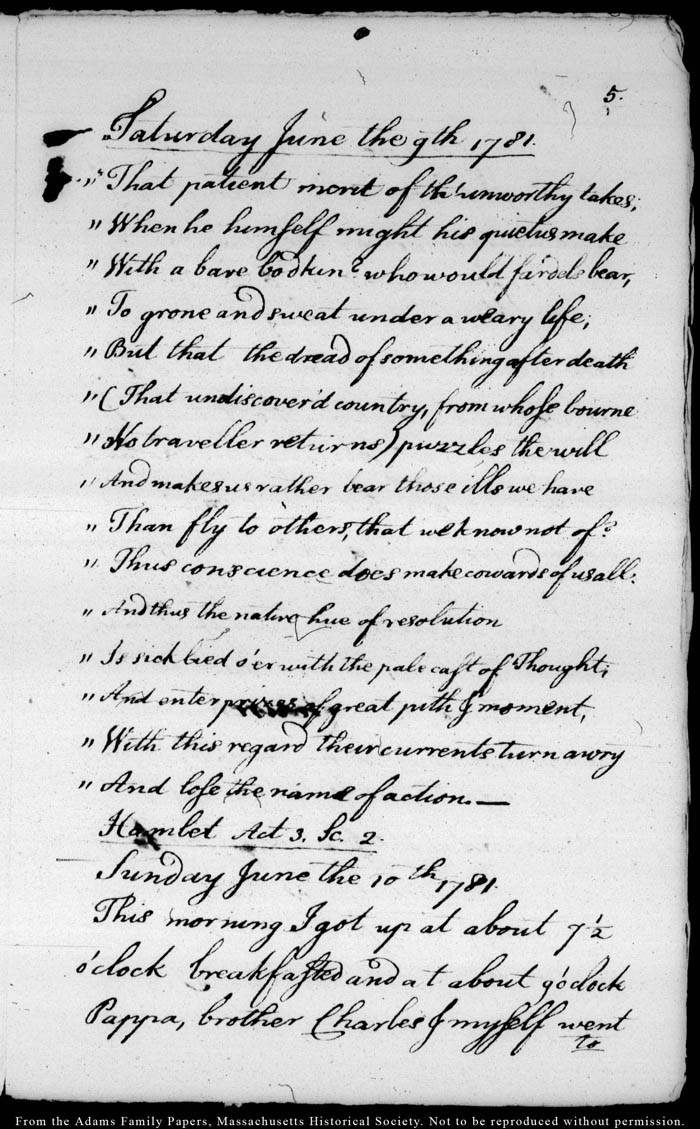 5.
Saturday June the 9th 1781.
"That patient merit of th'unworthy takes;
"When he himself might his quietus make
"With a bare bodkin? who would fardels bear,
"To grone and sweat under a weary life;
"But that the dread of something after death
"(That undiscover'd country, from whose bourne
"No traveller returns) puzzles the will
"And makes us rather bear those ills we have
"Than fly to others, that we know not of?
"Thus conscience does make cowards of us all:
"And thus the native hue of resolution
"Is sicklied o'er with the pale cast of Thought;
"And enterprizes of great pith & moment,
"With this regard their currents turn awry
"And lose the name of action.—
Hamlet Act 3. Sc. 2.
Sunday June the 10th 1781.
This morning I got up at about 7 1/2
o'clock breakfasted and at about 9 o'clock
Pappa, brother Charles & myself went
to
From the Adams Family Papers, Massachusetts Historical Society. Not to be reproduced without permission.